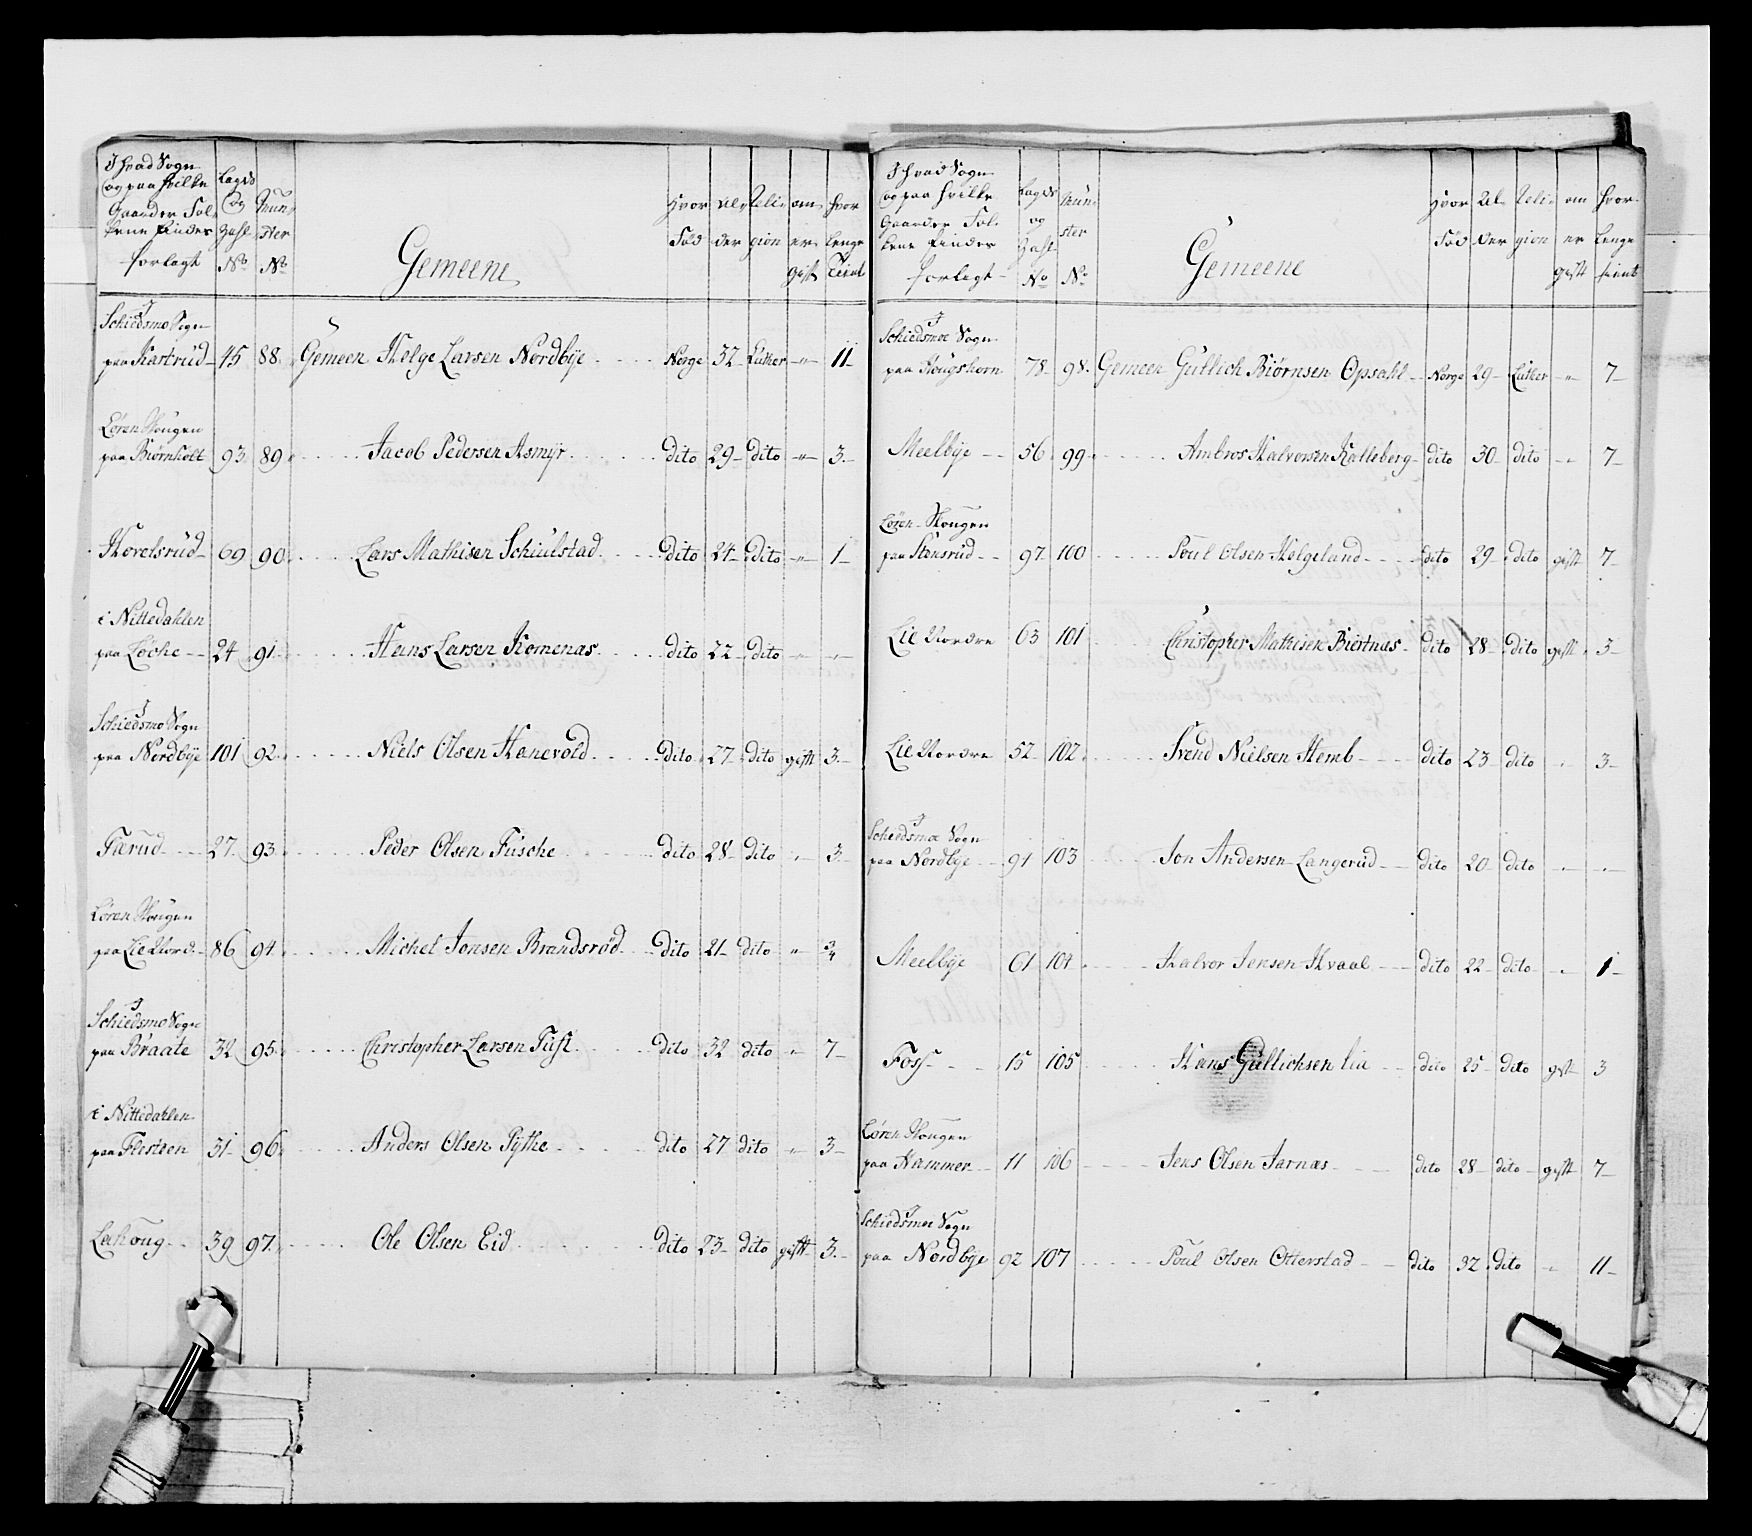 I hvad Sogn og paa hvilke Gaarder Fol- kene findes forlagt | Lægds og Zahl No | Mün- ster No | Gemeene | Hvor Fød | Al- der | Reli- gion | om er gift | hvor lenge tient
I Schiedsmo Sogn
paa Kartrud 45 88 Gemeen Helge Larsen Nordbÿe Norge 32 Luther " 11
Løren Skougen
paa Biørnholt 93 89 Jacob Pedersen Asmÿr dito 29 dito " 3
Hovelsrüd 69 90 Lars Mathisen Schiülstad dito 24 dito " 1
i Nittedahlen
paa Løche 24 91 Hans Larsen Homenæs dito 22 dito " "
I Schiedsmo Sogn
paa Nordbÿe 101 92 Niels Olsen Hanevold dito 27 dito gift 3
Færud 27 93 Peder Olsen Füsche dito 28 dito " 3
Løren Skougen
paa Lie Nord 86 94 Michel Jonsen Brandsrød dito 21 dito " 3/4
I Schiedsmo Sogn
paa Braate 32 95 Christopher Larsen Tüft dito 32 dito " 7
i Nittedahlen
paa Flesteen 31 96 Anders Olsen Pÿthe dito 27 dito " 3
Lahoug 39 97 Ole Olsen Eid dito 23 dito gift 3
I hvad Sogn og paa hvilke Gaarder Fol- kene findes forlagt | Lægds og Zahl No | Mün- ster No | Gemeene | Hvor Fød | Al- der | Reli- gion | om er gift | hvor lenge tient
I Schiedsmoe Sogn
paa Hougshorn 78 98 Gemeen Gutlich Biørnsen Opsahl Norge 29 Luther " 7
Meelbÿe 56 99 Ambros Halvorsen Kalleberg dito 30 dito " 7
Løren Skougen
paa Stensrud 97 100 Poul Olsen Helgeland dito 29 dito gift 7
Lie Nordre 63 101 Christopher Mathisen Biertnæs dito 28 dito gift 3
Lie Nordre 52 102 Svend Nielsen Hemb dito 23 dito " 3
I Schiedsmoe Sogn
paa Nordbye 91 103 Jon Andersen Langerud dito 20 dito " "
Meelbÿe 61 104 Halvor Jensen Hvaal dito 22 dito " 1
Foss 15 105 Hans Gullichsen Lia dito 25 dito gift 3
Løren Skougen
paa Hammer 11 106 Jens Olsen Jarnæs dito 28 dito gift 7
I Schiedsmoe Sogn
paa Nordbye 92 107 Poul Olsen Otterstad dito 32 dito " 11